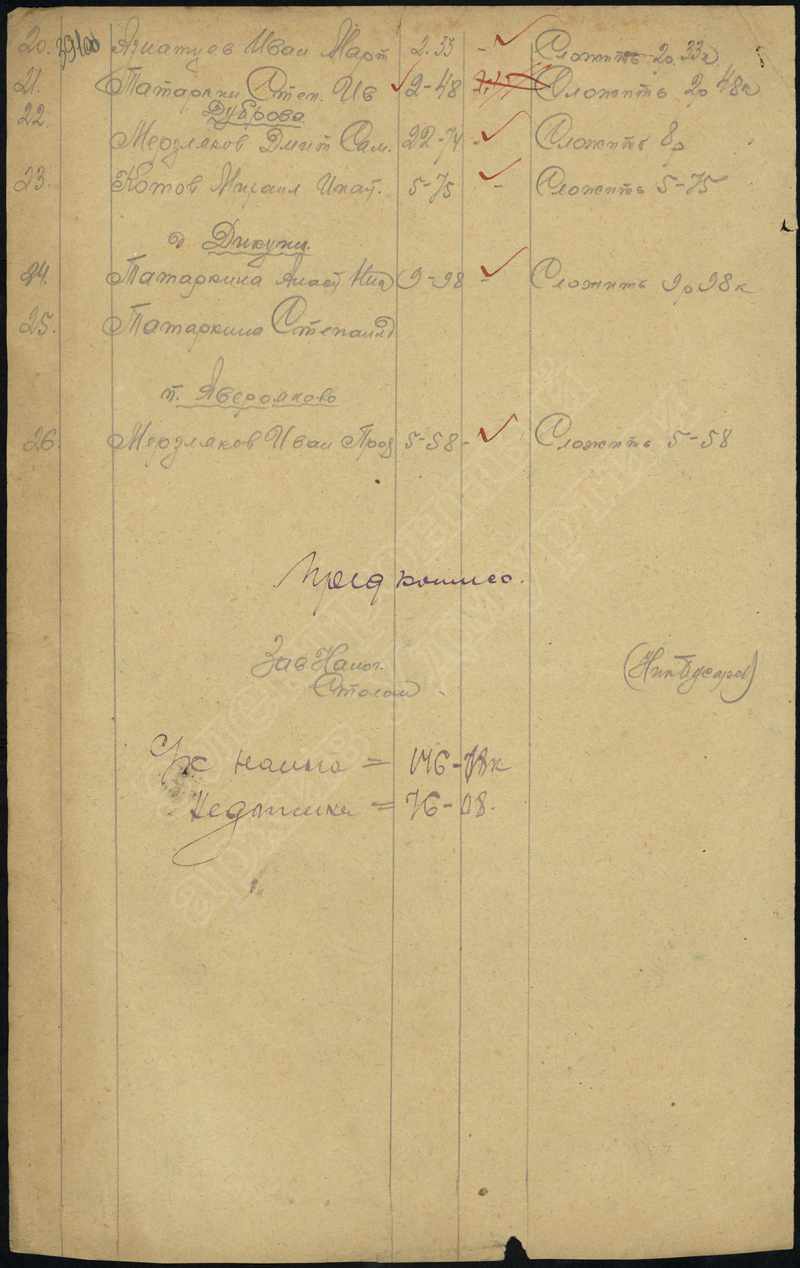 20. Азиатцев Иван Март 2.33 - Сложить 2р 33к
21. Татаркин Степ. Ив 2-48 Сложить 2р 48к
22. Дуброва
Мерзляков Дмит Сам. 22-74 - Сложить 8р
23. Котов Михаил Игнат. 5-75 - Сложить 5-75
д Дикуши.
24. Татаркина Анаст 9-98 - Сложить 9р 98к
25. Татаркина Степанид
п.
26. Мерзляков Иван Прох 5-58 - Сложить 5-58
Пред комисс.
Зав Налог.
Столом
С/х налога = 146-78к
Недоимки = 76-08.